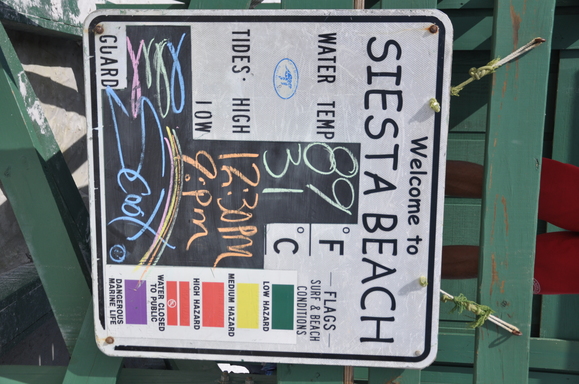 Welcome to
SIESTA BEACH
WATER TEMP 89 °F
31 °C
TIDES: HIGH 12:30PM
LOW 9:pm
GUARD Scoot
FLAGS
SURF & BEACH
CONDITIONS
LOW HAZARD
MEDIUM HAZARD
HIGH HAZARD
WATER CLOSED
TO PUBLIC
DANGEROUS
MARINE LIFE